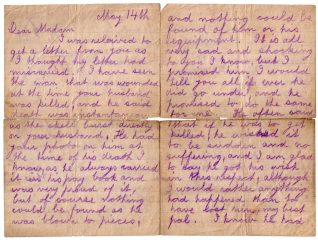 May 14th
Dear Madam
I was relieved to
get a letter from you as
I thought my letter had
miscarried. I have seen
the man that was wounded
at the time your husband
was killed, and he said
death was instantaneous
as the shell burst directly
on your husband. He had
your photo on him at
the time of his death I
know, as he always carried
it in his pay book and
was very proud of it,
but of course nothing
could be found as he
was blown to pieces,
and nothing could be
found of him or his
equipment. It is all
very sad and shocking
to you I know, but I
promised him I would
tell you all if ever he
did go under, and he
promised to do the same
for me. He often said
that if he got
killed, he wished it
to be sudden and no
suffering, and I am glad
to say he got his wish
in this respect, although
I would rather anything
had happened than to
have lost him, my best
pal. I know he had